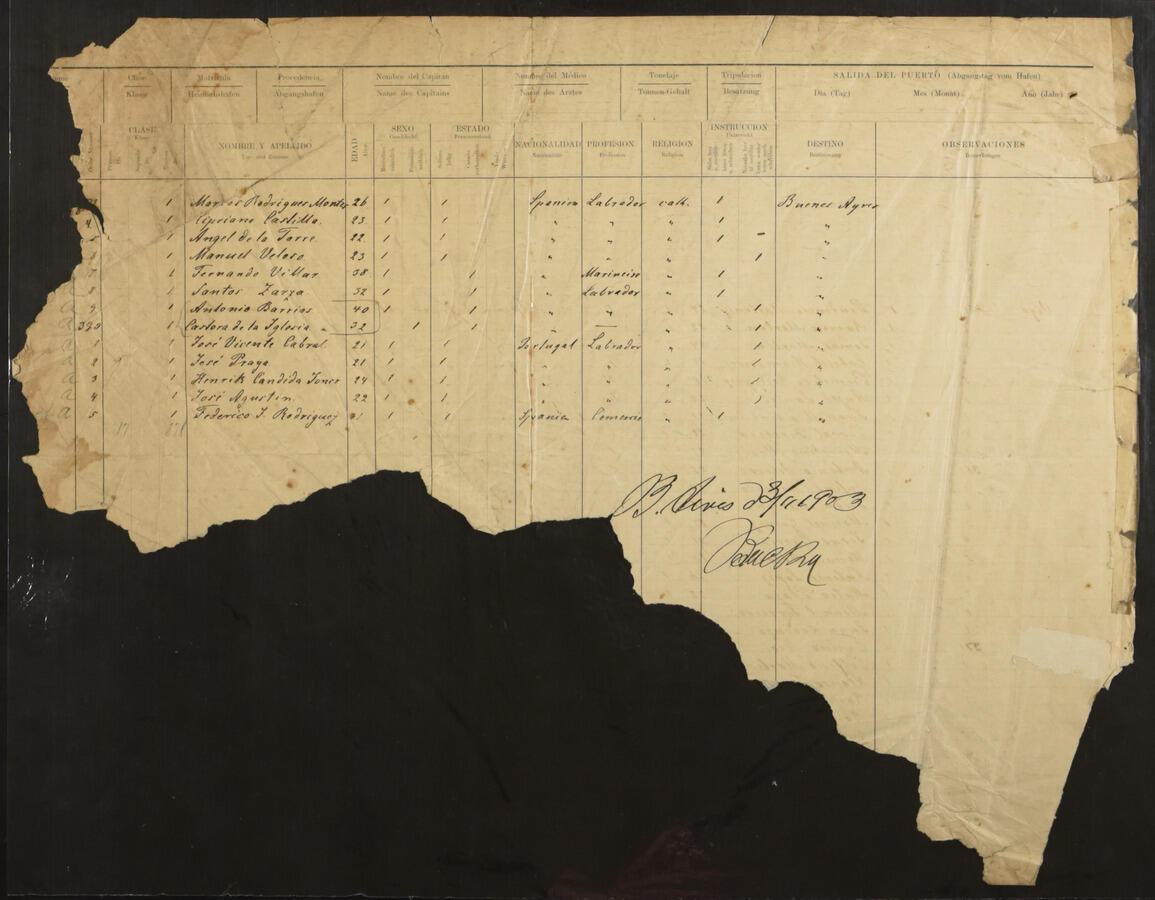 Clase Matrícula Procedencia Nombre del Capitán Nombre del Médico Tonelaje Tripulacion SALIDA DEL PUERTO (Abgangstag vom Hafen)
Klasse Heimathshafen Abgangshafen Name des Capitains Name des Arztes Tonnen-Gehalt Besatzung Dia (Tag) Mes (Monat) Año (Jahr)
CLASE NOMBRE Y APELLIDO EDAD SEXO ESTADO NACIONALIDAD PROFESION RELIGION INSTRUCCION DESTINO OBSERVACIONES
Klasse Vor- und Zuname Alter Geschlecht Personenstand Nationalität Profession Religion Unterricht Bestimmung Bemerkungen
1 Marcos Rodriguez Montes 26 1 1 Spanien Labrador cath. 1 Buenes Ayres
4 1 Cipriano Castilla 23 1 1 " " " 1 "
5 1 Angel de la Torre 22 1 1 " " " 1 - "
6 1 Manuel Veloso 23 1 1 " " " 1 "
7 1 Fernando Villar 38 1 1 " " 1 "
8 1 Santos Zarza 32 1 1 " Labrador " 1 "
a 9 1 Antonio Barrios 40 1 1 " " " 1 "
a 390 1 Castora de la Iglesia 32 1 1 " — " 1 "
a 1 1 José Vicente Cabral 21 1 1 Portugal Labrador " 1 "
a 2 1 José Praga 21 1 1 " " " 1 "
a 3 1 Henrik Candida 24 1 1 " " " 1 "
a 4 1 José Agustin 22 1 1 " " " 1 "
a 5 1 Federico J. Rodriguez 1 1 Spanien " 1 "
B. Aires